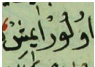 اولورایمش